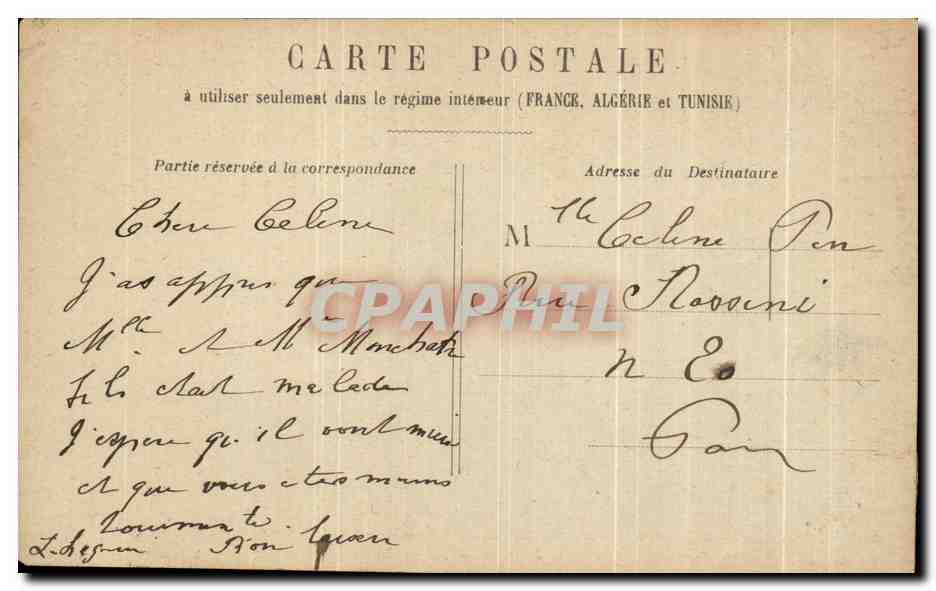 CARTE POSTALE
à utiliser seulement dans le régime intérieur (FRANCE, ALGÉRIE et TUNISIE)
Partie réservée à la correspondance
Chere Celene
J'as appris que
Mlle et M
fils etait malade
J'espere qu'il vont mieu
et que vous etes moins
tourmente.
Bon baiser
Adresse du Destinataire
Mlle Celene
Rue Rossini
n
Paris
CPAPHIL